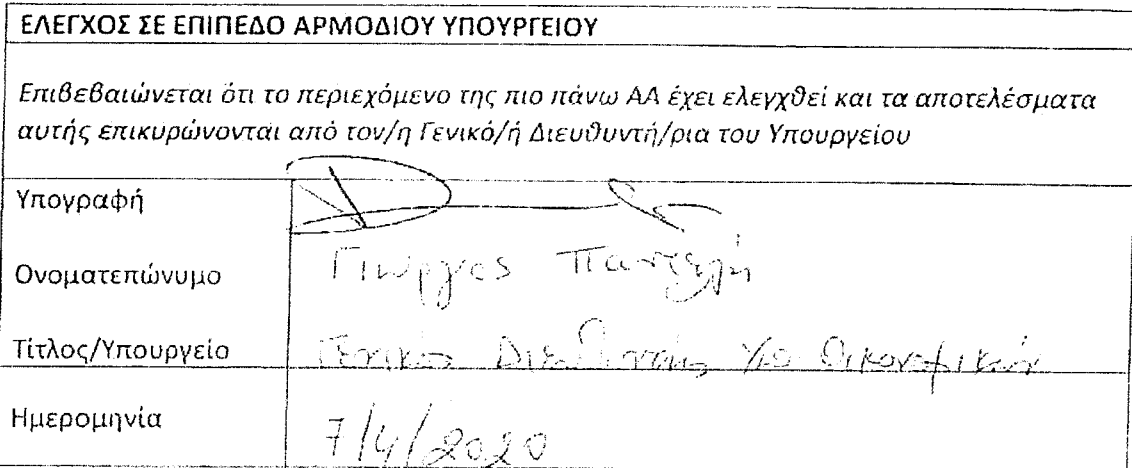 ΕΛΕΓΧΟΣ ΣΕ ΕΠΙΠΕΔΟ ΑΡΜΟΔΙΟΥ ΥΠΟΥΡΓΕΙΟΥ
Επιβεβαιώνεται ότι το περιεχόμενο της πιο πάνω ΑΑ έχει ελεγχθεί και τα αποτελέσματα
αυτής επικυρώνονται από τον/η Γενικό/ή Διευθυντή/ρια του Υπουργείου
Υπογραφή
Ονοματεπώνυμο Γιώργος Παντελή
Τίτλος/Υπουργείο Γενικός Διευθυντής Υπ. Οικονομικών
Ημερομηνία 7/4/2020